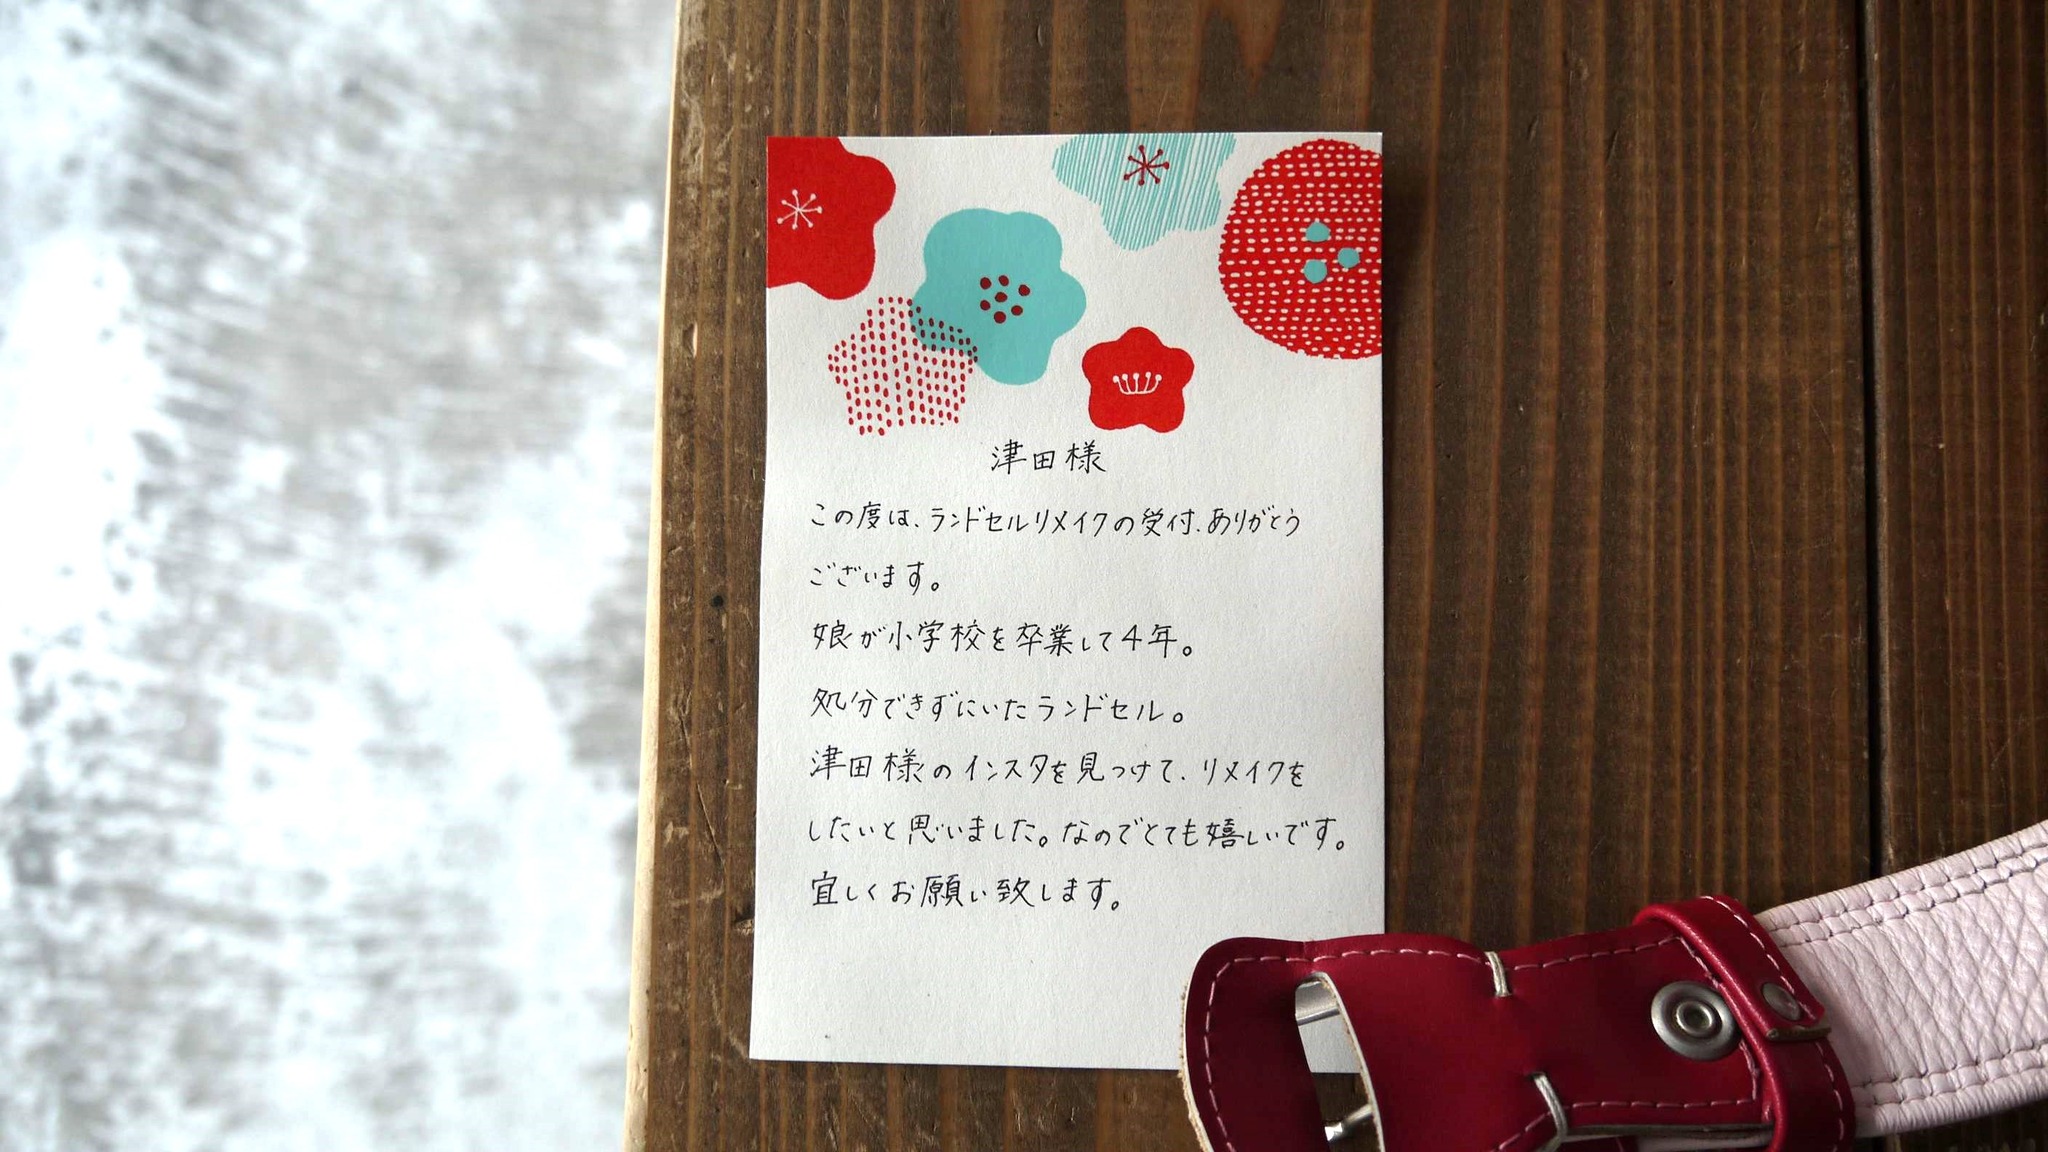 津田様
この度は、ランドセルリメイクの受付、ありがとう
ございます。
娘が小学校を卒業して4年。
処分できずにいたランドセル。
津田様のインスタを見つけて、リメイクを
したいと思いました。なのでとても嬉しいです。
宜しくお願い致します。